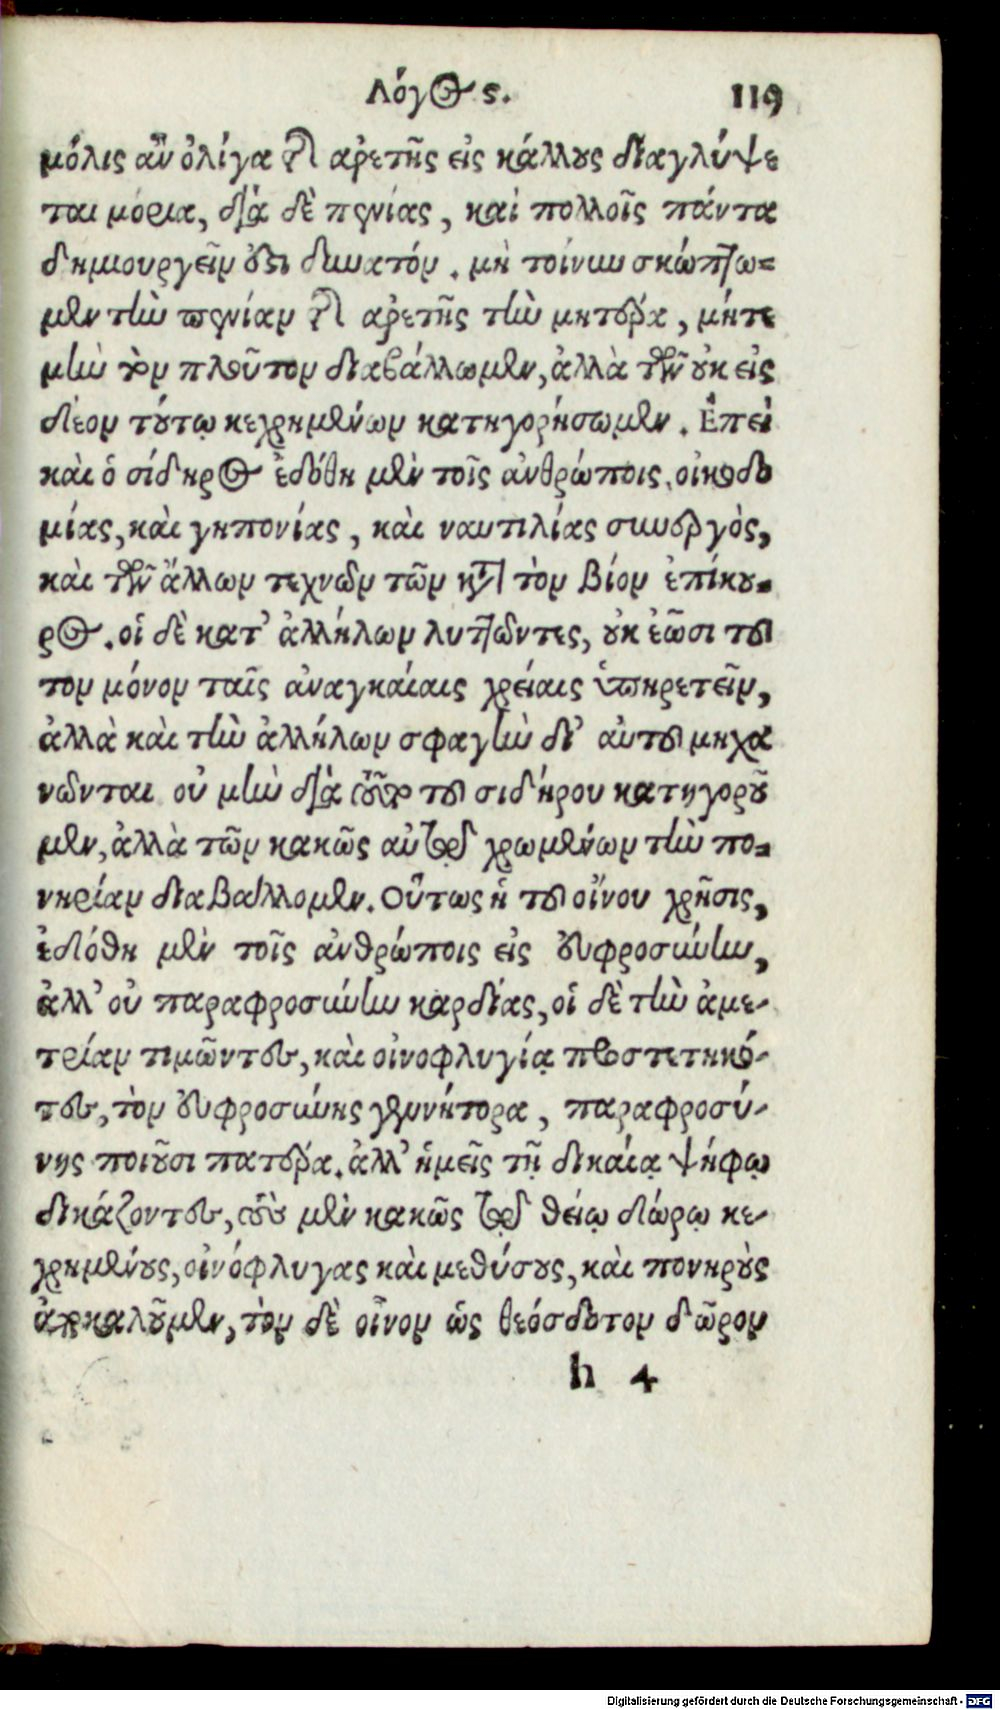 Λόγος ς. 119
μόλις ἂν ὀλίγα τῆς ἀρετῆς εἰς κάλλους διαγλύψε
ται μόρια, διὰ δὲ πενίας, καὶ πολλοῖς πάντα
δημιουργεῖν ὅτι δυνατόν. μὴ τοίνυν σκώπτω=
μεν τὴν πενίαν τῆς ἀρετῆς τὴν μητέρα, μήτε
μὴν τὸν πλοῦτον διαβάλλωμεν, ἀλλὰ τῶν οὐκ εἰς
δέον τούτῳ κεχρημένων κατηγορήσωμεν. Ἐπεὶ
καὶ ὁ σίδηρος ἐδόθη μὲν τοῖς ἀνθρώποις, οἰκοδο
μίας, καὶ γηπονίας, καὶ ναυτιλίας συνεργὸς,
καὶ τῶν ἄλλων τεχνῶν τῶν κατὰ τὸν βίον ἐπίκου=
ρος. οἱ δὲ κατ' ἀλλήλων λυττῶντες, οὐκ ἐῶσι τοῦ
τον μόνον ταῖς ἀναγκαίαις χρείαις ὑπηρετεῖν,
ἀλλὰ καὶ τὴν ἀλλήλων σφαγὴν δι' αὐτοῦ μηχα
νῶνται οὐ μὴν διὰ τοῦτο τοῦ σιδήρου κατηγοροῦ
μεν, ἀλλὰ τῶν κακῶς αὐτῷ χρωμένων τὴν πο=
νηρίαν διαβάλλομεν. Οὕτως ἡ τοῦ οἴνου χρῆσις,
ἐδόθη μὲν τοῖς ἀνθρώποις εἰς εὐφροσύνην,
ἀλλ' οὐ παραφροσύνην καρδίας, οἱ δὲ τὴν ἀμε-
τρίαν τιμῶντες, καὶ οἰνοφλυγίᾳ προστετηκό-
τες, τὸν εὐφροσύνης γεννήτορα, παραφροσύ-
νης ποιοῦσι πατέρα. ἀλλ' ἡμεῖς τῇ δικαίᾳ ψήφῳ
δικάζοντες, τοὺς μὲν κακῶς τῷ θείῳ δώρῳ κε-
χρημένους, οἰνόφλυγας καὶ μεθύσους, καὶ πονηροὺς
ἀποκαλοῦμεν, τὸν δὲ οἶνον ὡς θεόσδοτον δῶρον
h 4
Digitalisierung gefördert durch die Deutsche Forschungsgemeinschaft - DFG